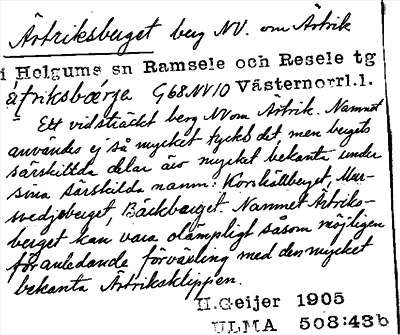 Ärtriksberget berg NV. om Ärtrik
i Helgums sn Ramsele och Resele tg
ắtriksbærja G68NV10 Västernorrl.l.
Ett vidsträckt berg NV om Ärtrik. Namnet
användes ej så mycket tycks det, men bergets
särskillda delar äro mycket bekanta under
sina särskilda namn: Korshällberget, Mur-
svedjeberget, Bäckberget. Namnet Ärtriks-
berget kan vara olämpligt såsom möjligen
föranledande förväxling med den mycket
bekanta Ärtriksklippen.
H.Geijer 1905
ULMA 508:43b